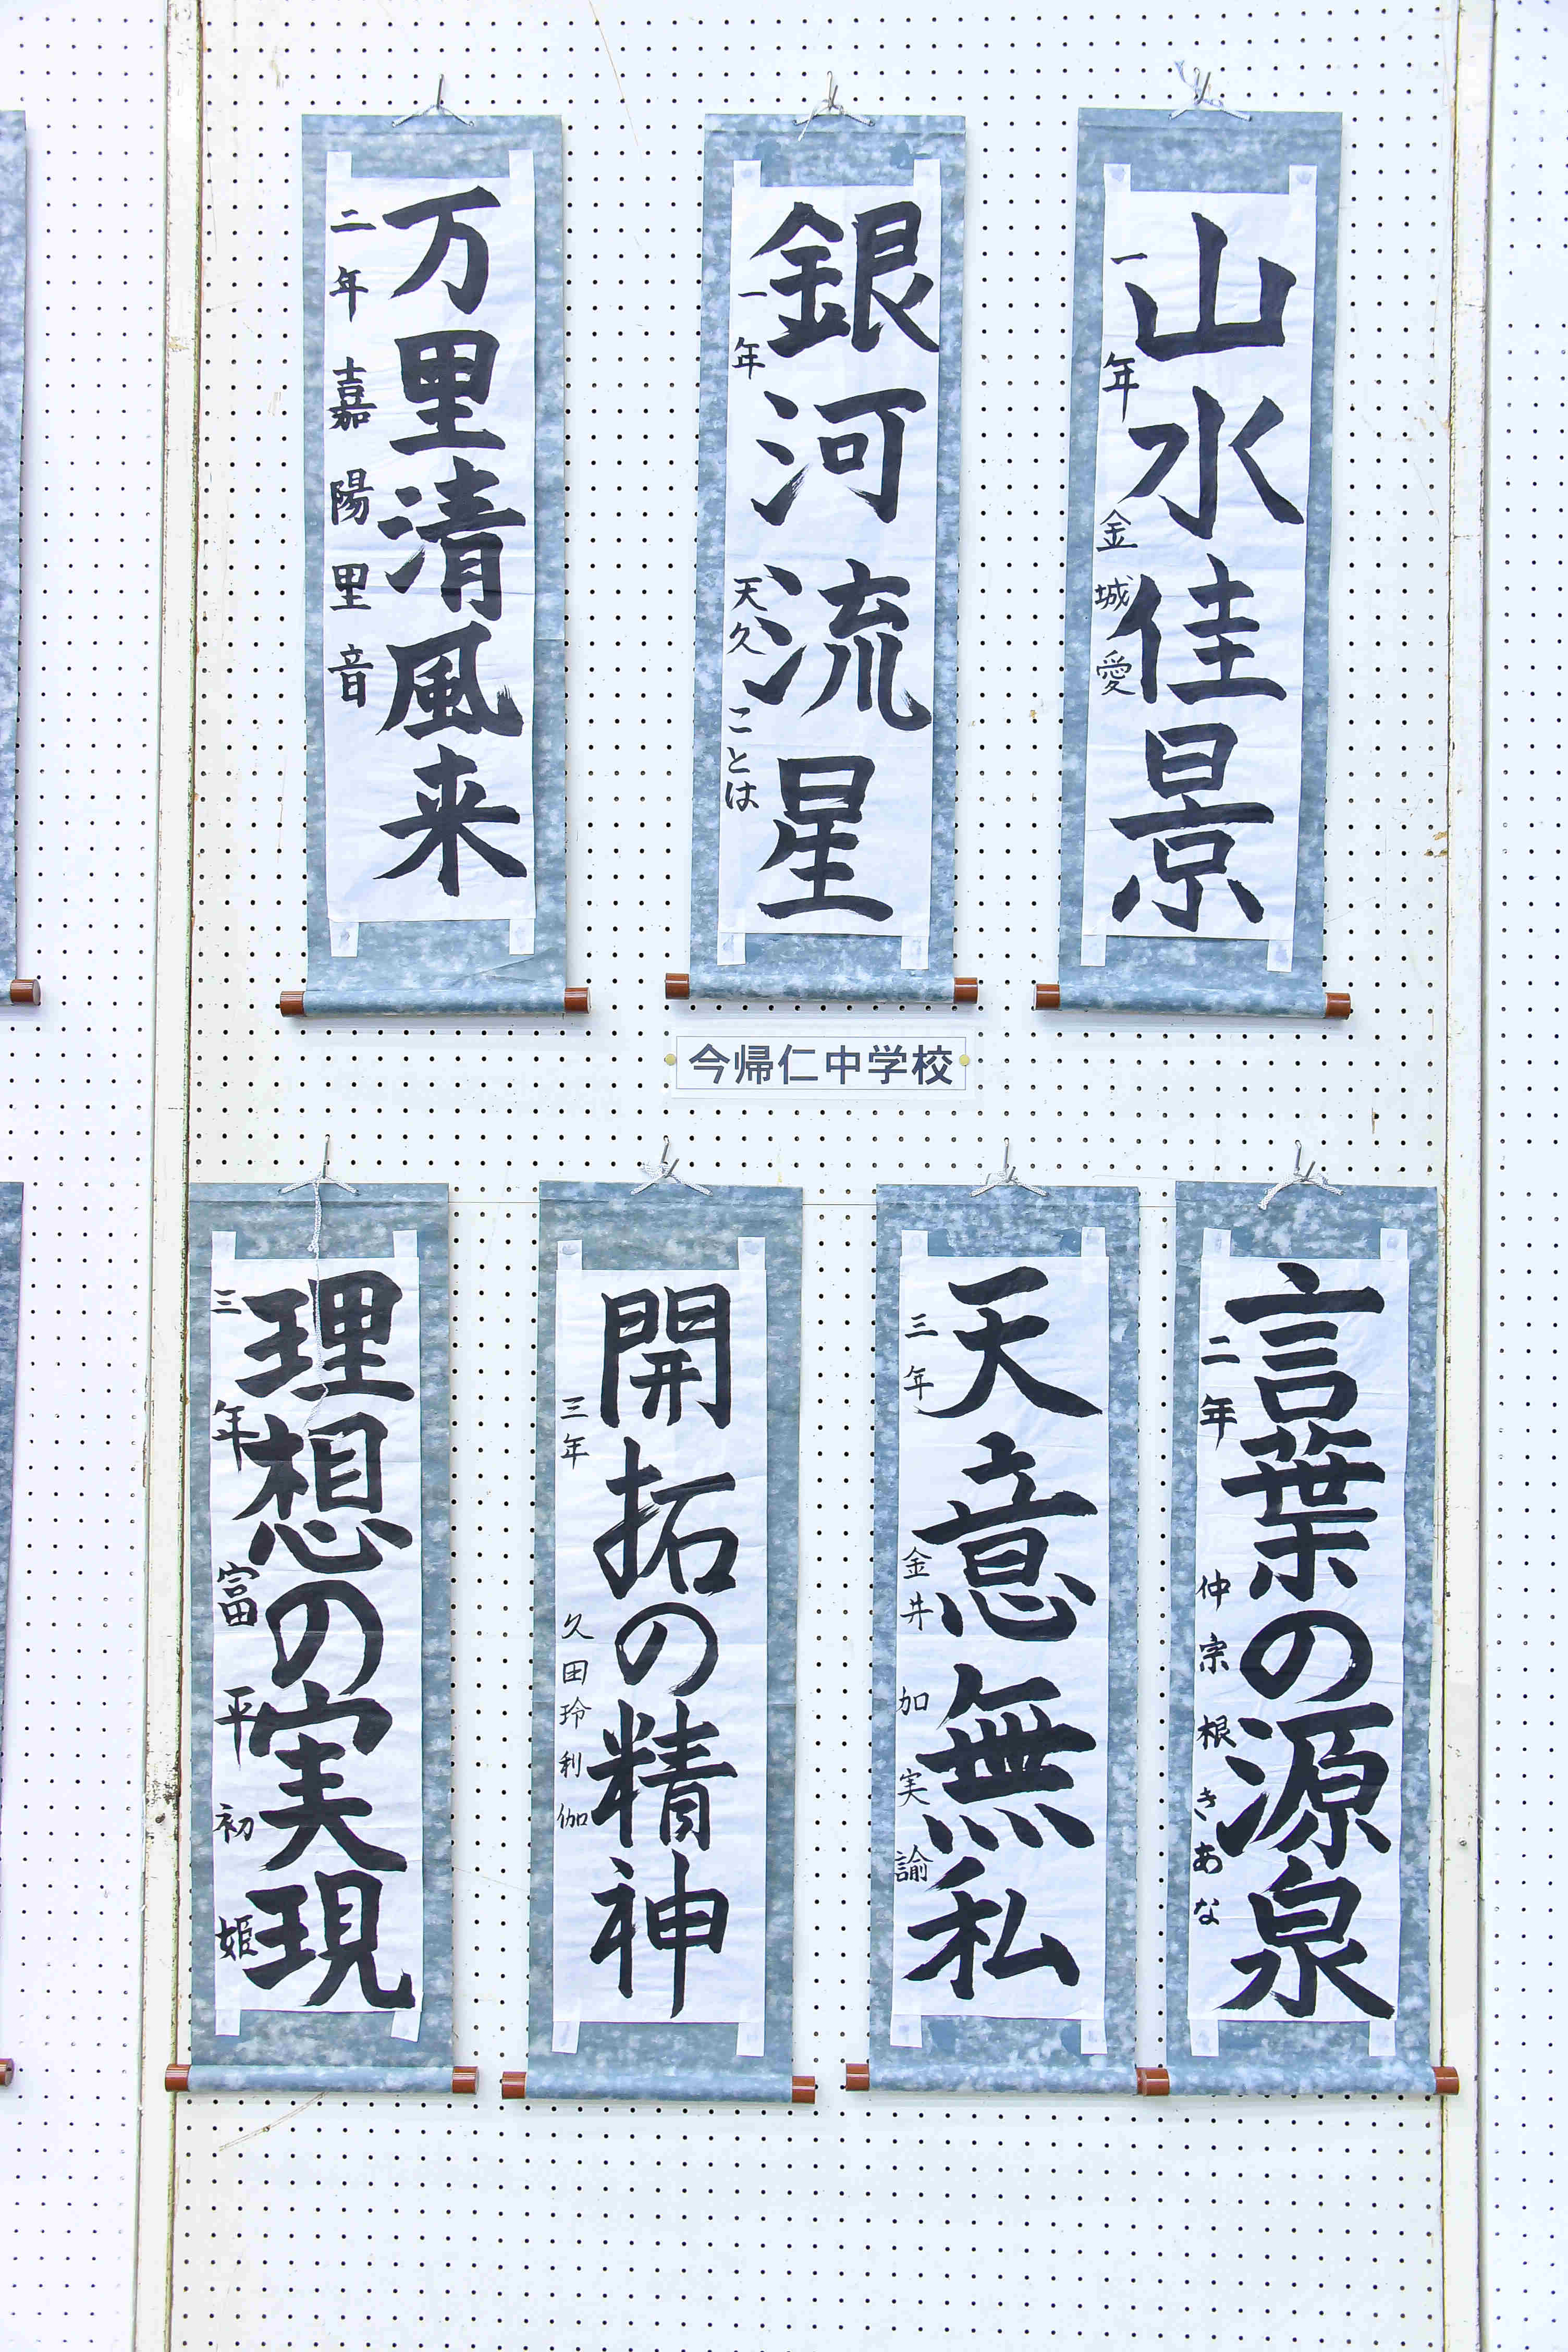 山水佳景
一年 金城愛
銀河流星
一年 天久ことは
万里清風来
二年 嘉陽里音
今帰仁中学校
言葉の源泉
二年 仲宗根きあな
天意無私
三年 金井加実諭
開拓の精神
三年 久田玲利伽
理想の実現
三年 富平初姫